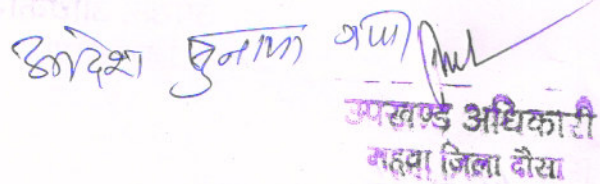 आदेश सुनाया गया
उपखण्ड अधिकारी
महवा जिला दौसा